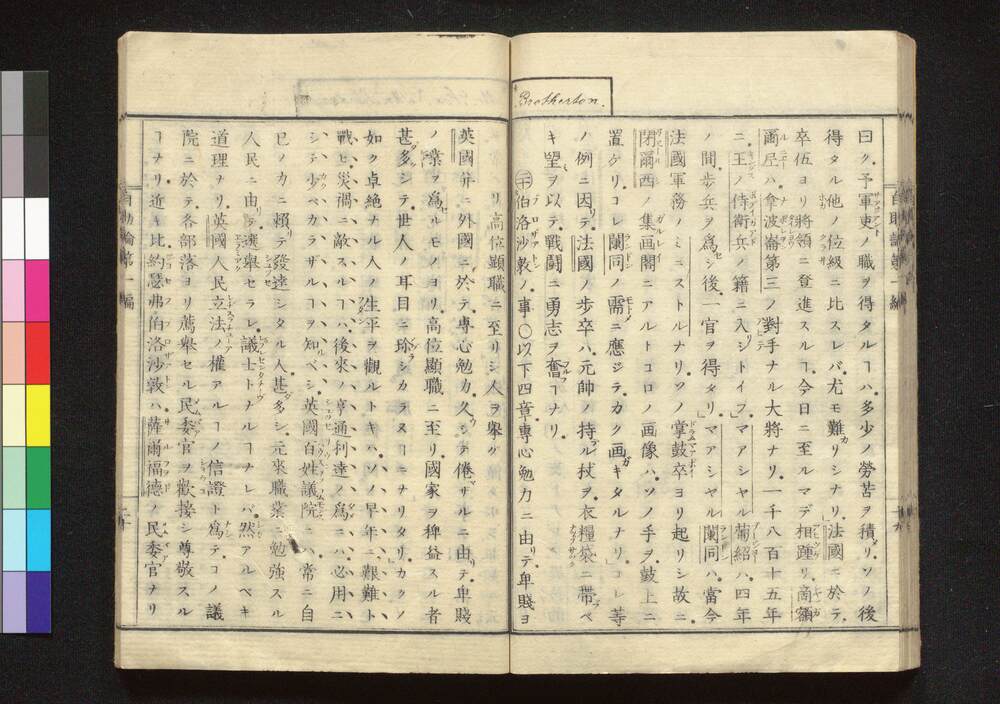 Brotherton.
曰ク、予軍吏ノ職ヲ得タルヿハ、多少ノ勞苦ヲ積リ、ソノ後
得タル他ノ位級ニ比スレバ、尤モ難カリシナリ、法國ニ於テ、
卒伍ヨリ將領ニ登進スルヿ、今日ニ至ルマデ相踵リ、
拿波崙第三ノ對手ナル大將ナリ、一千八百十五年
ニ、王ノ侍衛兵ノ籍ニ入リシトイフ、マアシャル葡紹ハ、四年
ノ間、歩兵ヲ為シ、後一官ヲ得タリ、マアシャル蘭同ハ、當今
法國軍務ノミニストルナリ、ソノ掌鼓卒ヨリ起リシ故ニ、
閉爾西ノ集画閣ニアルトコロノ画像ハ、ソノ手ヲ鼓上ニ
置ケリ、コレ蘭同ノ需ニ應ジテ、カク画ギタルナリ、コレ等
ノ例ニ因テ、法國ノ歩卒ハ、元帥ノ持ル杖ヲ衣糧袋ニ帶ベ
キ望ヲ以テ、戰鬪ニ勇志ヲ奮フヿナリ、
伯洛沙敦ノ事○以下四章專心勉力ニ由リテ卑賤ヨ
リ高位顯職ニ至リシ人ヲ舉グ
英國并ニ外國ニ於テ、專心勉力、久シテ倦ザルニ由リテ、卑賤
ノ業ヲ為セルモノヨリ、高位顯職ニ至リ、國家ヲ裨益スル者
甚ダ多クシテ、世人ノ耳目ニ珍シカラヌヿニナリタリ、カクノ
如ク卓絶ナル人ノ生平ヲ觀ルトキハ、ソノ早年ニ艱難ト
戰ヒ、災禍ニ敵スルヿハ、後來ノ亨通利達ノ為ニハ、必用ニ
シテ少ベカラザルヿヲ知ルベシ、英國百姓議院ハ、常ニ自
己ノ力ニ賴リテ發達シタル人甚ダ多シ、元來職業ニ勉強スル
人民ニ由リテ選舉セラレ、議士トナルヿナレバ、然アルベキ
道理ナリ、英國人民立法ノ權アルヿノ信證ト為テ、コノ議
院ニ於テ、各部落ヨリ薦舉セル民委官ヲ歡接シ尊敬スル
ヿナリ、近キ比約瑟弗伯洛沙敦ハ、薩爾福德ノ民委官ナリ
自助論第一編